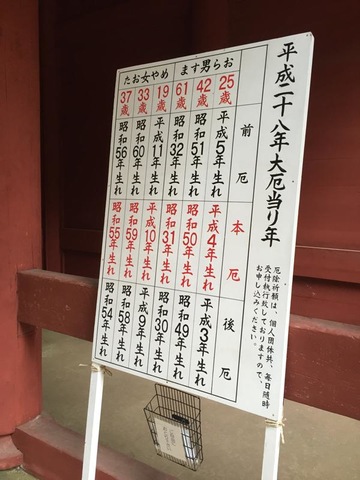 平成二十八年大厄当り年
厄除祈願は、個人団体共、毎日随時
受付執行致しておりますので、
お申し込みください。
たお女やめ ます男らお
前厄
本厄
後厄
25歳 平成5年生れ 平成4年生れ 平成3年生れ
42歳 昭和51年生れ 昭和50年生れ 昭和49年生れ
61歳 昭和32年生れ 昭和31年生れ 昭和30年生れ
19歳 平成11年生れ 平成10年生れ 平成9年生れ
33歳 昭和60年生れ 昭和59年生れ 昭和58年生れ
37歳 昭和56年生れ 昭和55年生れ 昭和54年生れ